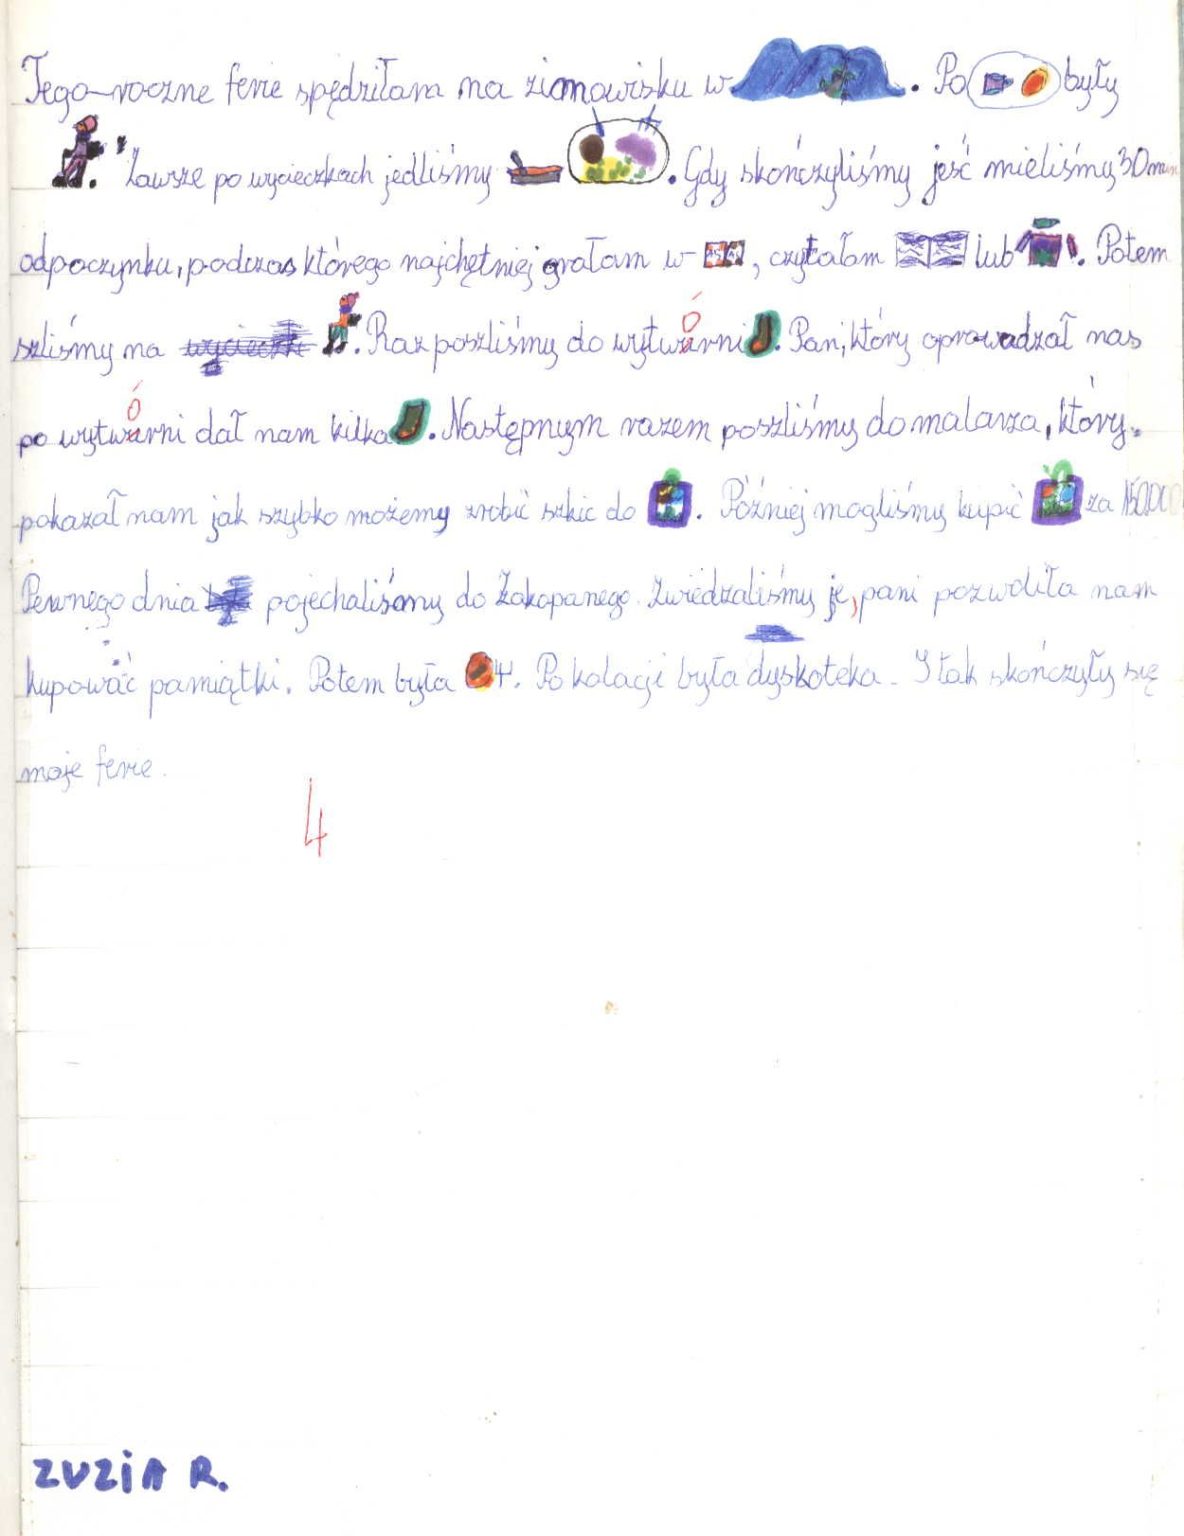 Tego-roczne ferie spędziłam na zimowisku w . Po były
. Zawsze po wycieczkach jedliśmy . Gdy skończyliśmy jeść mieliśmy 30 min
odpoczynku, podczas którego najchętniej grałam w , czytałam lub . Potem
szliśmy na wycieczki . Raz poszliśmy do wytwórni . Pan, który oprowadzał nas
po wytwórni dał nam kilka . Następnym razem poszliśmy do malarza, który
pokazał nam jak szybko możemy zrobić szkic do . Później mogliśmy kupić za
Pewnego dnia pojechaliśmy do Zakopanego. Zwiedzaliśmy je, pani pozwoliła nam
kupować pamiątki. Potem była . Po kolacji była dyskoteka. I tak skończyły się
moje ferie.
4
ZUZIA R.